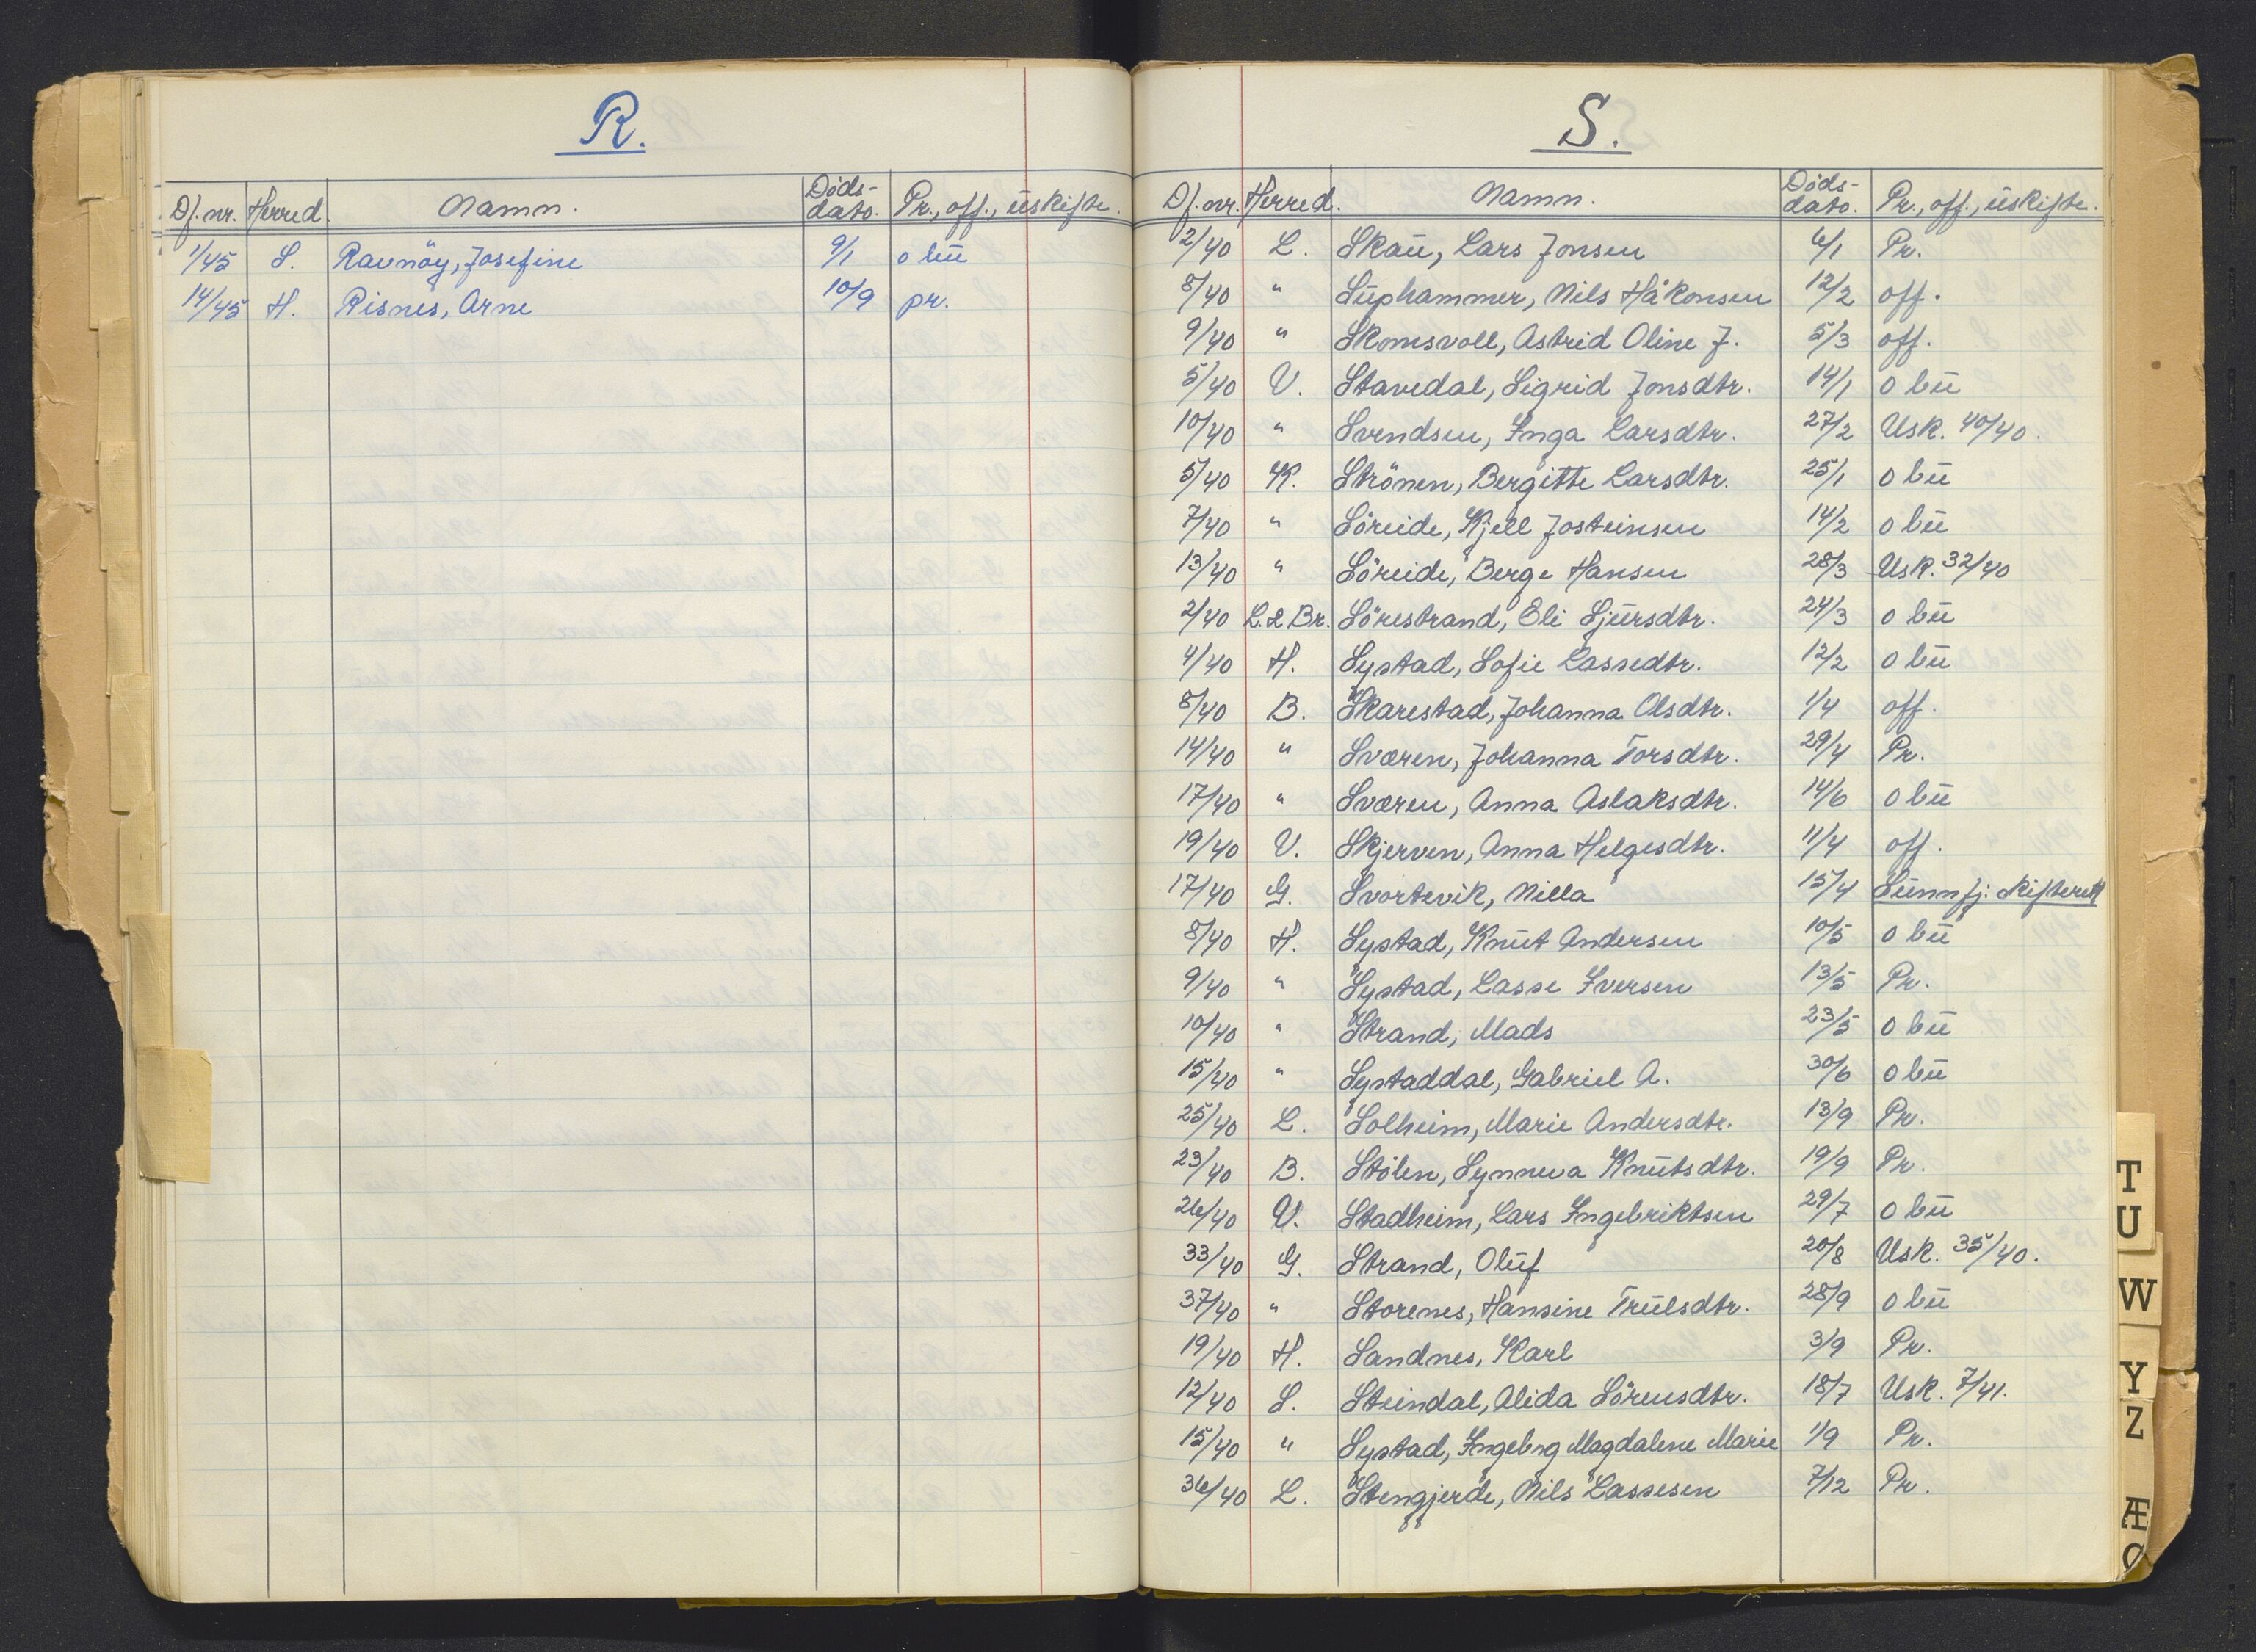 R.
Df. nr. Herred. Namn. Döds-dato. Pr., off., uskifte.
1/45 S. Ravnöy, Josefine 9/1 o bu
14/45 H. Risnes, Arne 10/9 pr.
S.
Df. nr. Herred. Namn. Döds-dato. Pr., off., uskifte.
2/40 L. Skau, Lars Jonsen 6/1 Pr.
8/40 " Suphammer, Nils Håkonsen 12/2 off.
9/40 " Skomsvoll, Astrid Oline J. 5/3 off.
5/40 V. Stavedal, Sigrid Jonsdtr. 14/1 o bu
10/40 " Svendsen, Inga Larsdtr. 27/2 Usk. 40/40.
5/40 K. Strönen, Bergitte Larsdtr. 25/1 o bu
7/40 " Söreide, Kjell Josteinsen 14/2 o bu
13/40 " Söreide, Berge Hansen 28/3 Usk. 32/40
2/40 L. & Br. Sörestrand, Eli Sjursdtr. 24/3 o bu
4/40 H. Systad, Sofie Lassedtr. 12/2 o bu
8/40 B. Skarestad, Johanna Olsdtr. 1/4 off.
14/40 " Sværen, Johanna Torsdtr. 29/4 Pr.
17/40 " Sværen, Anna Aslaksdtr. 14/6 o bu
19/40 V. Skjerven, Anna Helgesdtr. 11/4 off.
17/40 G. Svortevik, Nilla 15/4 Sunnfj. skifterett
8/40 H. Systad, Knut Andersen 10/5 o bu
9/40 " Systad, Lasse Iversen 13/5 Pr.
10/40 " Strand, Mads 23/5 o bu
15/40 " Systaddal, Gabriel A. 30/6 o bu
25/40 L. Solheim, Marie Andersdtr. 13/9 Pr.
23/40 B. Stølen, Synneva Knutsdtr. 19/9 Pr.
26/40 V. Stadheim, Lars Ingebriktsen 29/7 o bu
33/40 G. Strand, Oluf 20/8 Usk. 35/40.
37/40 " Storenes, Hansine Trulsdtr. 28/9 o bu
19/40 H. Sandnes, Karl 3/9 Pr.
12/40 S. Steindal, Alida Sörensdtr. 18/7 Usk. 7/41.
15/40 " Systad, Ingebrg Magdalene Marie 1/9 Pr.
36/40 L. Stengjerde, Nils Lassesen 7/12 Pr.
T
U
W
Y
Z
Æ
Ø